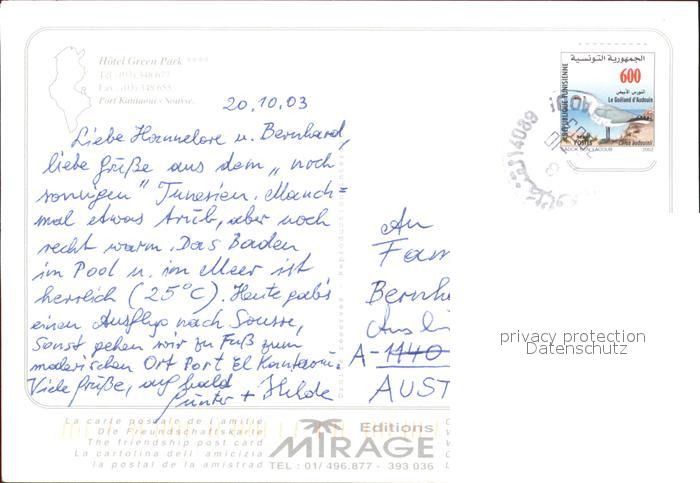 Hôtel Green Park ****
Tél : (03) 348 677
Fax : (03) 348 655
Port Kantaoui - Sousse.
20.10.03
Liebe Hannelore u. Bernhard,
liebe Grüße aus dem „noch
sonnigen" Tunesien. Manch=
mal etwas trüb, aber noch
recht warm. Das Baden
im Pool u. im Meer ist
herrlich (25°C). Heute gab's
einen Ausflug nach Sousse,
Sonst gehen wir zu Fuß zum
malerischen Ort Port El Kantaoui.
Viele Grüße, auf bald
Günter + Hilde
الجمهورية التونسية
REPUBLIQUE TUNISIENNE
600
النورس الأبيض
Le Goéland d'Audouin
Larus audouinii
POSTES
2002
14089
An
Fam
Bernh
A-1140
AUST
privacy protection
Datenschutz
La carte postale de l'amitié
Die Freundschaftskarte
The friendship post card
La cartolina dell' amicizia
la postal de la amistrad
Editions
MIRAGE
TEL : 01/ 496.877 - 393 036